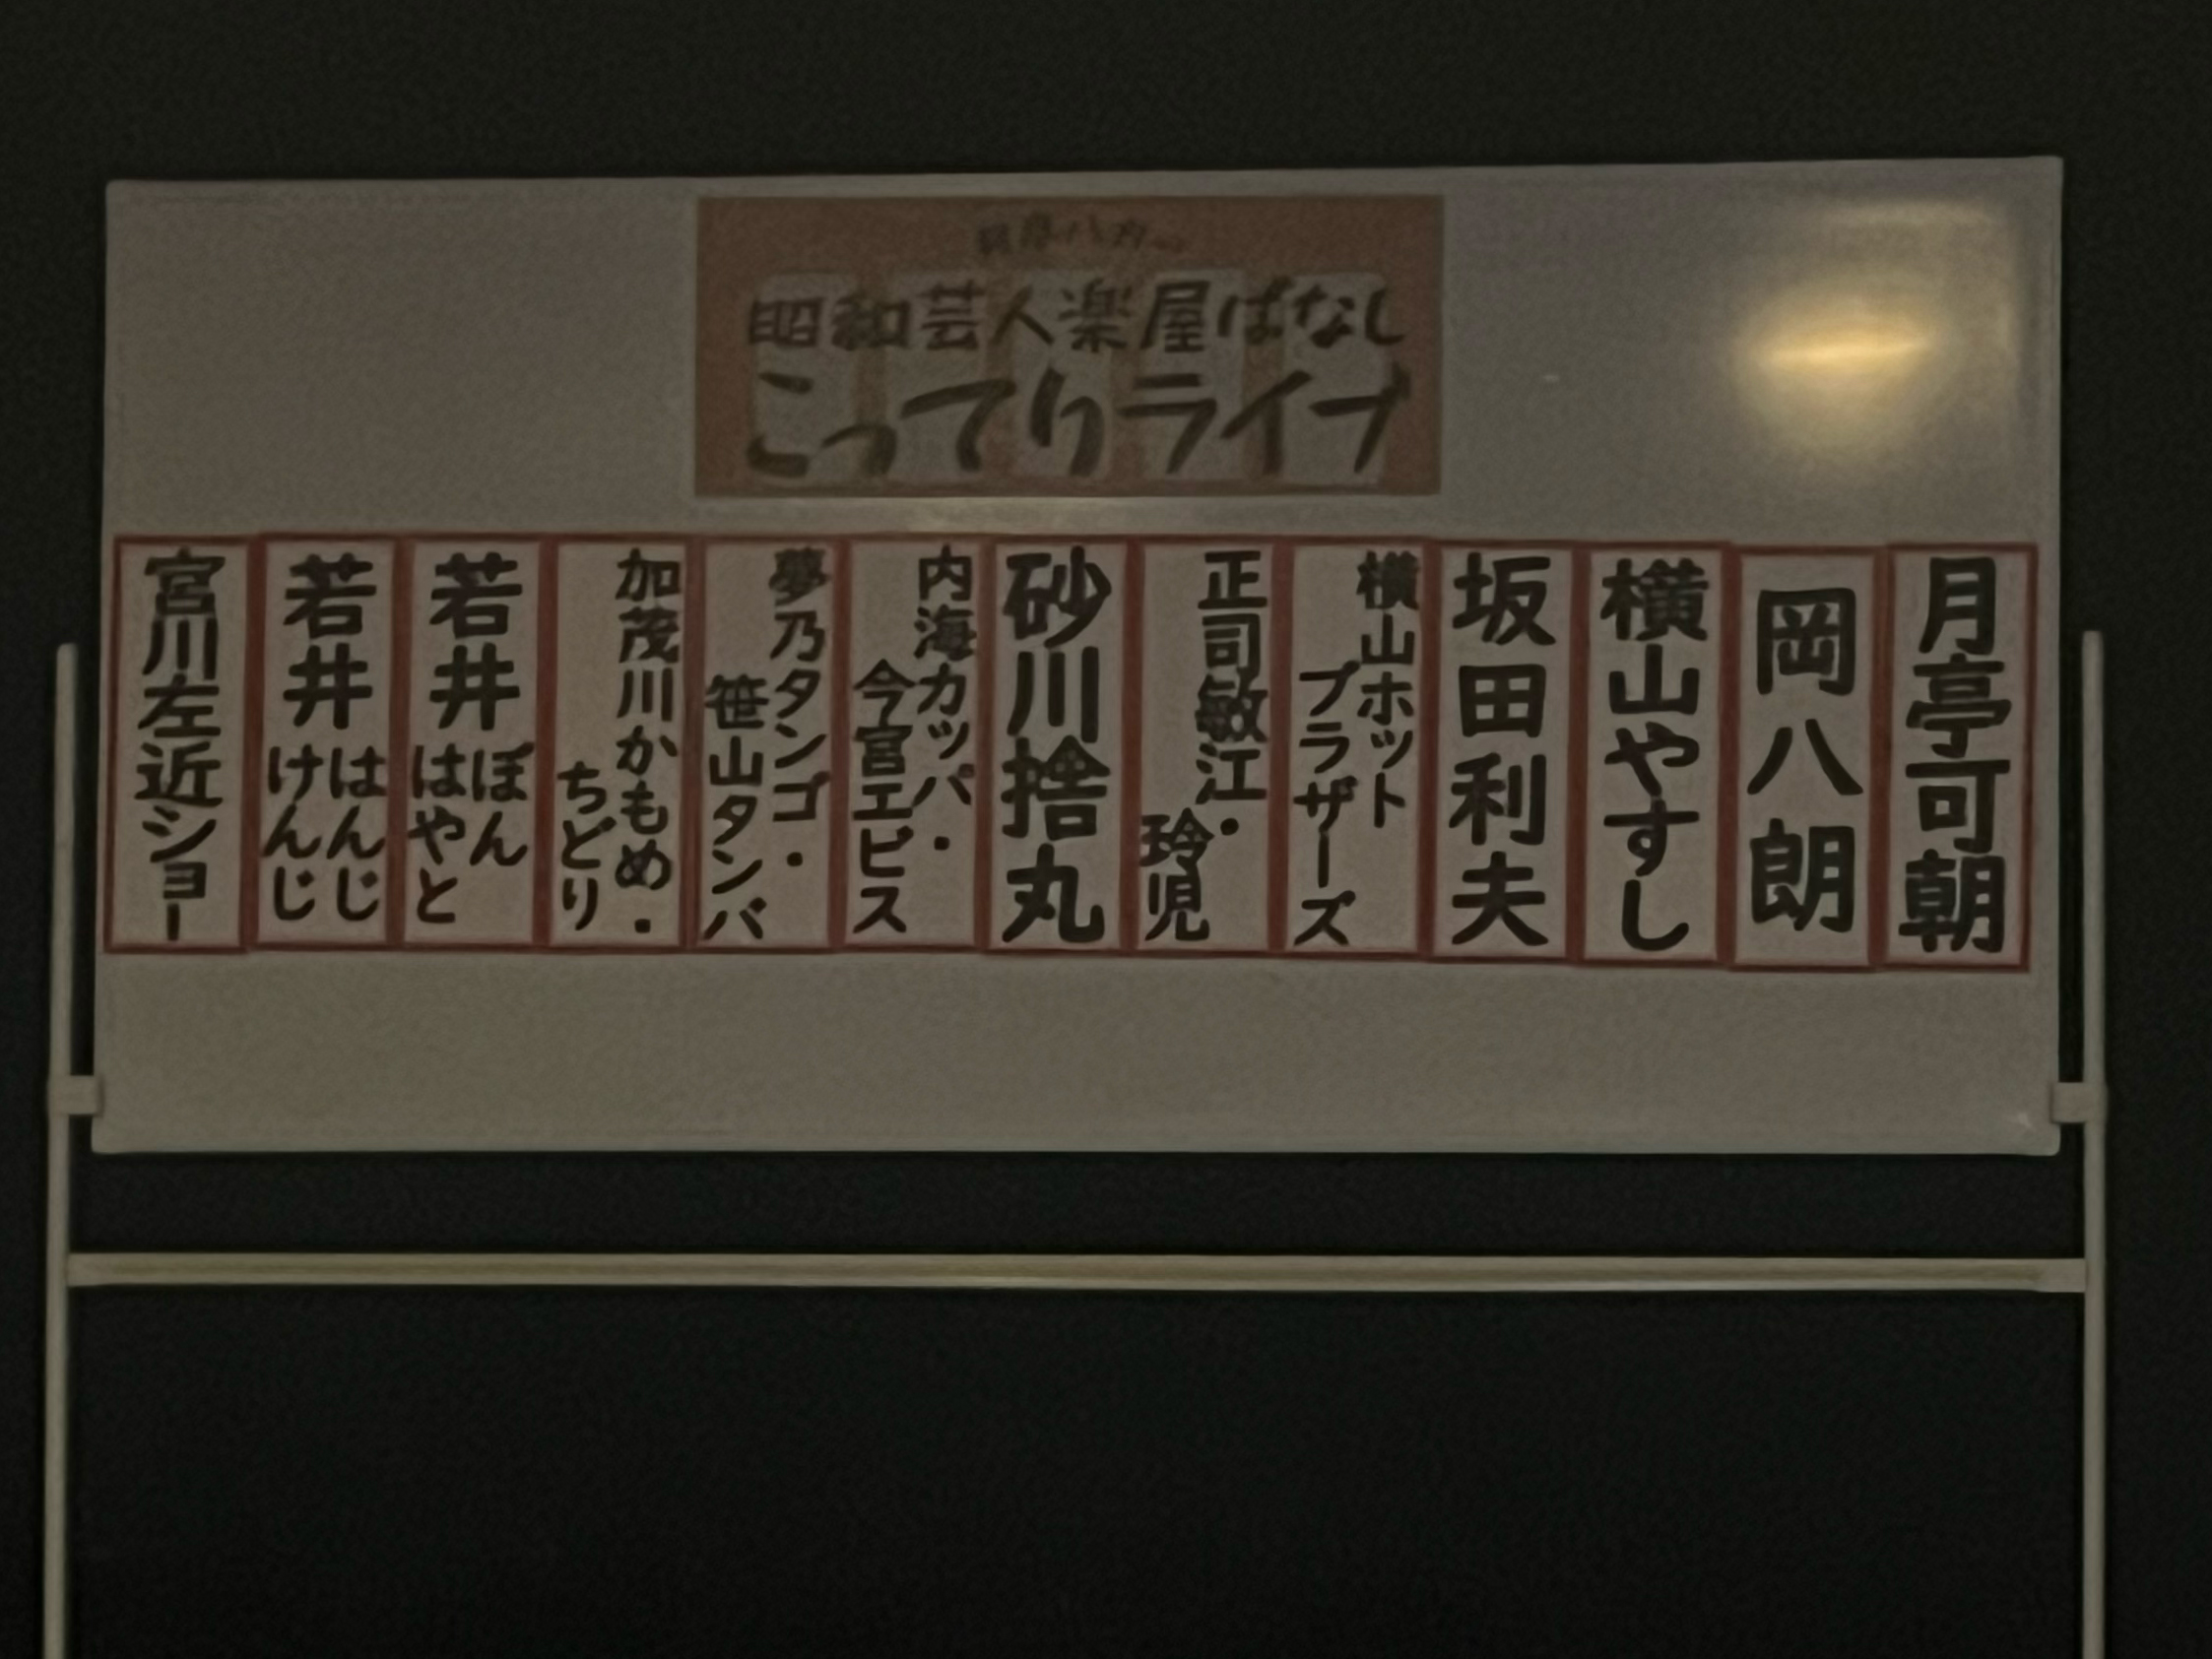 昭和芸人楽屋ばなし
こってりライブ
月亭可朝
岡八朗
横山やすし
坂田利夫
横山ホット
ブラザーズ
正司敏江・
玲児
砂川捨丸
内海カッパ・
今宮エビス
夢乃タンゴ・
笹山タンバ
加茂川かもめ・
ちどり
若井
ぼん
はやと
若井
はんじ
けんじ
宮川左近ショー